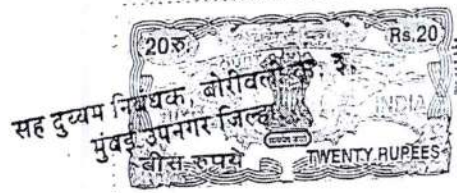 20रु. Rs.20
सह दुय्यम निबंधक, बोरीवली क्र. ३,
मुंबई उपनगर जिल्हा
INDIA
बीस रुपये TWENTY RUPEES